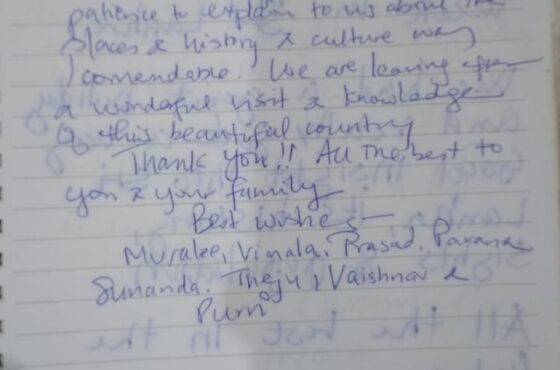 patience to explain to us about the
places & history & culture was
comendable. We are leaving after
a wonderful visit & knowledge
of this beautiful country
Thank you!! All the best to
you & your family
Best wishes —
Muralee, Vimala, Prasad, Pavana
Sunanda, Theju, Vaishnav &